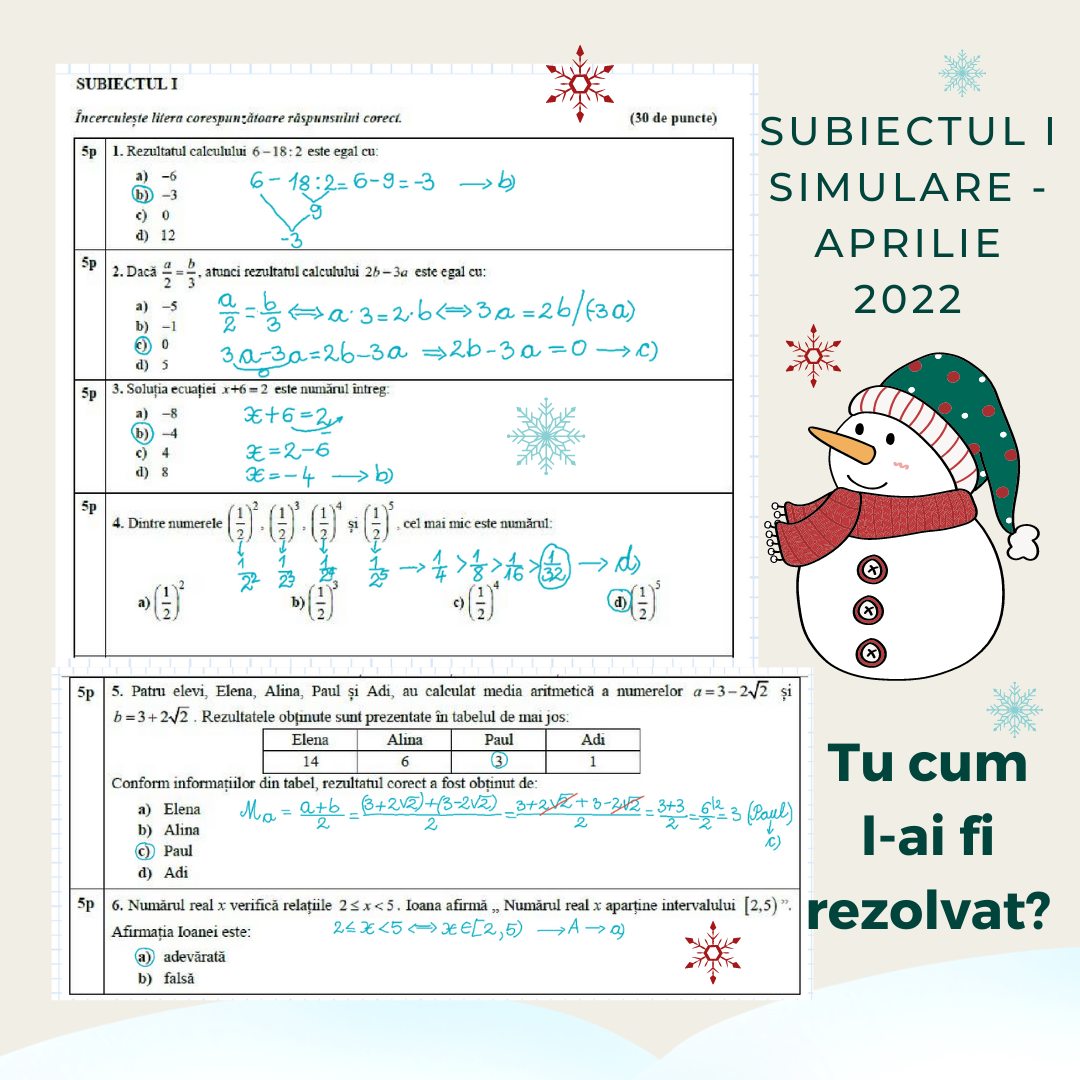 SUBIECTUL I
Încercuiește litera corespunzătoare răspunsului corect. (30 de puncte)
5p 1. Rezultatul calculului 6 – 18 : 2 este egal cu:
a) –6
b) –3
c) 0
d) 12
6 – 18 : 2 = 6 – 9 = –3 → b)
9
–3
5p 2. Dacă a/2 = b/3, atunci rezultatul calculului 2b – 3a este egal cu:
a) –5
b) –1
c) 0
d) 5
a/2 = b/3 ⟺ a · 3 = 2 · b ⟺ 3a = 2b /(-3a)
3a – 3a = 2b – 3a ⇒ 2b – 3a = 0 → c)
0
5p 3. Soluția ecuației x + 6 = 2 este numărul întreg:
a) –8
b) –4
c) 4
d) 8
x + 6 = 2
x = 2 – 6
x = –4 → b)
5p 4. Dintre numerele (1/2)², (1/2)³, (1/2)⁴ și (1/2)⁵, cel mai mic este numărul:
1/2² 1/2³ 1/2⁴ 1/2⁵ → 1/4 > 1/8 > 1/16 > 1/32 → d)
a) (1/2)² b) (1/2)³ c) (1/2)⁴ d) (1/2)⁵
5p 5. Patru elevi, Elena, Alina, Paul și Adi, au calculat media aritmetică a numerelor a = 3 – 2√2 și
b = 3 + 2√2 . Rezultatele obținute sunt prezentate în tabelul de mai jos:
Elena Alina Paul Adi
14 6 3 1
Conform informațiilor din tabel, rezultatul corect a fost obținut de:
a) Elena
b) Alina
c) Paul
d) Adi
Ma = (a+b)/2 = ((3+2√2)+(3-2√2))/2 = (3+2√2+3-2√2)/2 = (3+3)/2 = 6/2 |2 = 3 (Paul)
c)
5p 6. Numărul real x verifică relațiile 2 ≤ x < 5. Ioana afirmă „ Numărul real x aparține intervalului [2,5) ”.
Afirmația Ioanei este:
2 ≤ x < 5 ⟺ x ∈ [2, 5) → A → a)
a) adevărată
b) falsă
SUBIECTUL I
SIMULARE -
APRILIE
2022
Tu cum
l-ai fi
rezolvat?